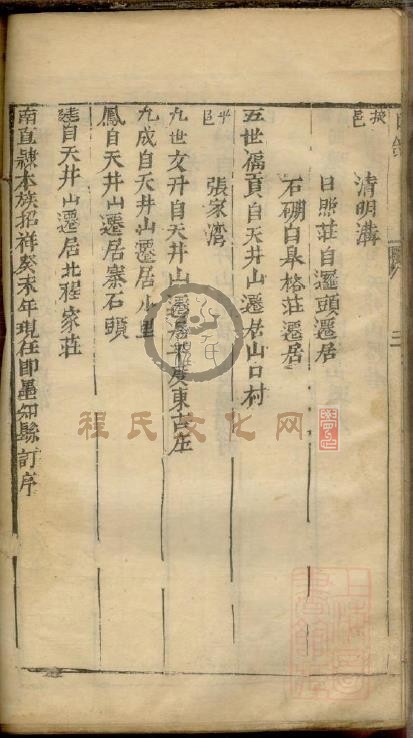 掖邑
清明溝
日照莊自邏頭遷居
石硼白阜榕莊遷居
五世福貢自天井山遷居山口村
平邑
張家灣
九世文升自天井山遷居東古庄
九成自天井山遷居小里
鳳自天井山遷居寨石頭
自天井山遷居北程家莊
南直隸本族招祥癸未年現任即墨知縣訂序
三
程氏文化网